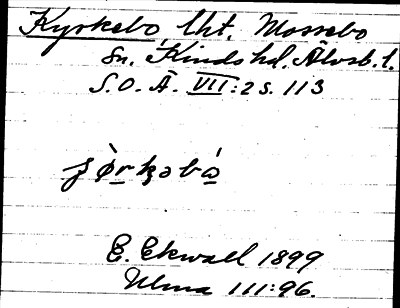 Kyrkebo, lht. Mossebo
Sn. Kinds hd. Älvsb. l.
S.O.Ä. VII:2 s. 113
E. Ekwall 1899
Ulma 111:96.